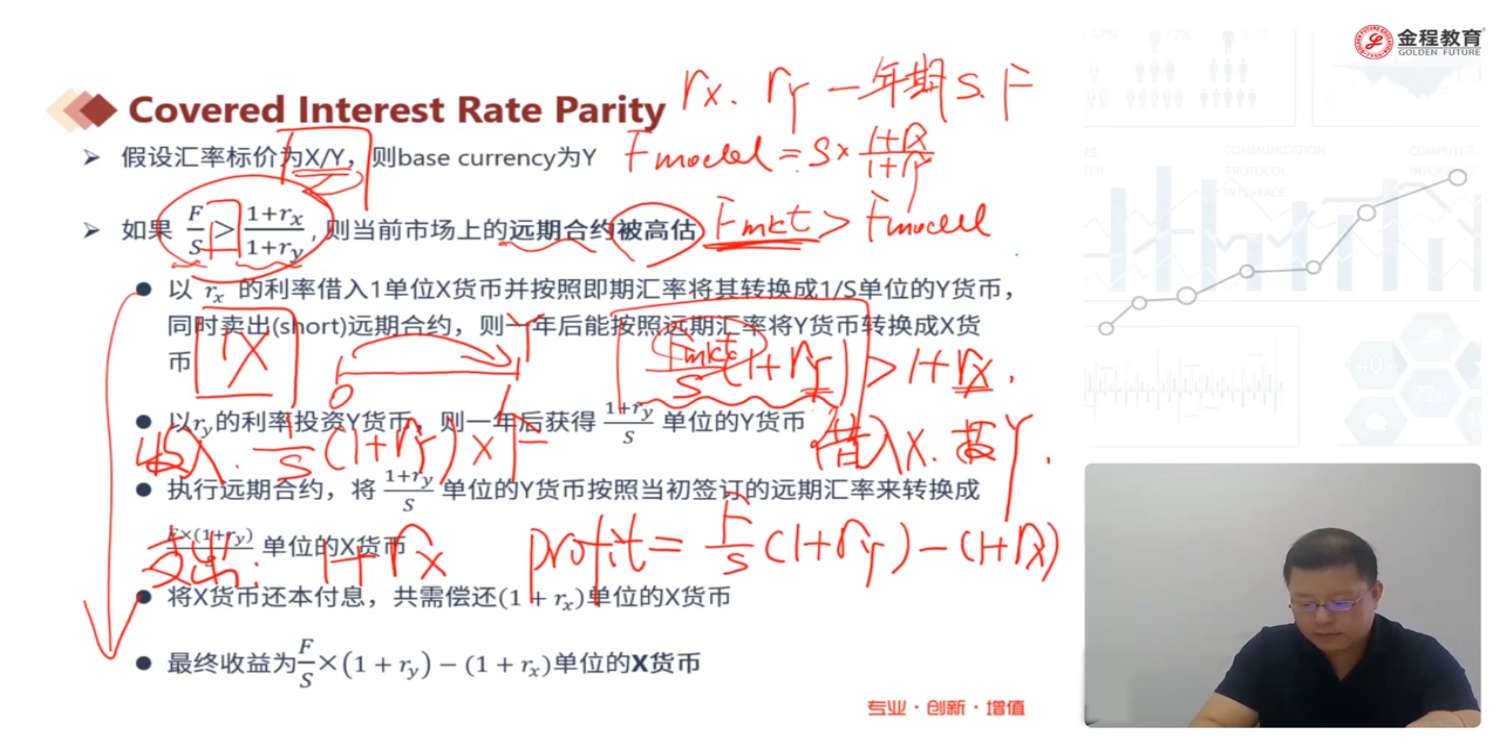 金程教育
GOLDEN FUTURE
Covered Interest Rate Parity
rx. ry 一年期 S. F
假设汇率标价为X/Y，则base currency为Y
Fmodel = S × (1+rx)/(1+ry)
如果 F/S > (1+rx)/(1+ry), 则当前市场上的远期合约被高估
Fmkt > Fmodel
以 rx 的利率借入1单位X货币并按照即期汇率将其转换成1/S单位的Y货币，
同时卖出(short)远期合约，则一年后能按照远期汇率将Y货币转换成X货
币
1X
0
1
Y
Fmkt/S (1+ry) > 1+rx.
以ry的利率投资Y货币，则一年后获得 (1+ry)/S 单位的Y货币
收入. 1/S (1+ry) × F
借入X. 投Y.
执行远期合约，将 (1+ry)/S 单位的Y货币按照当初签订的远期汇率来转换成
F×(1+ry)/S 单位的X货币
支出: 1+rx
profit = F/S (1+ry) - (1+rx)
将X货币还本付息，共需偿还(1 + rx)单位的X货币
最终收益为F/S×(1 + ry) − (1 + rx)单位的X货币
专业·创新·增值
COMMUNICATION
PROTOCOL
INTERFACE